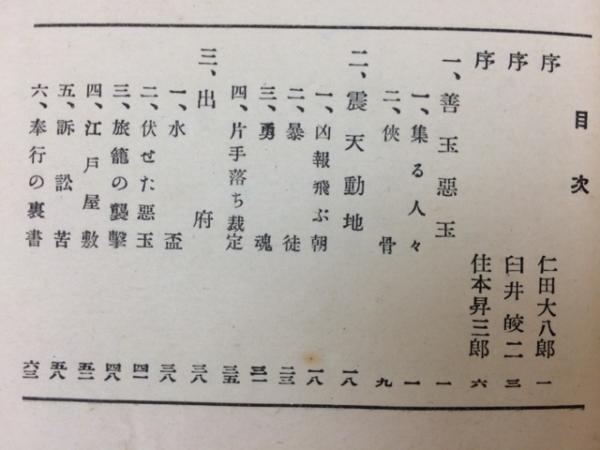 目次
序 仁田大八郎 一
序 臼井皎二 三
序 住本昇三郎 六
一、善玉惡玉 一
一、集る人々 一
二、俠骨 九
二、震天動地 一八
一、凶報飛ぶ朝 一八
二、暴徒 二三
三、勇魂 三一
四、片手落ち裁定 三五
三、出府 三八
一、水盃 三八
二、伏せた惡玉 四一
三、旅籠の襲擊 四八
四、江戸屋敷 五二
五、訴訟苦 五八
六、奉行の裏書 六三